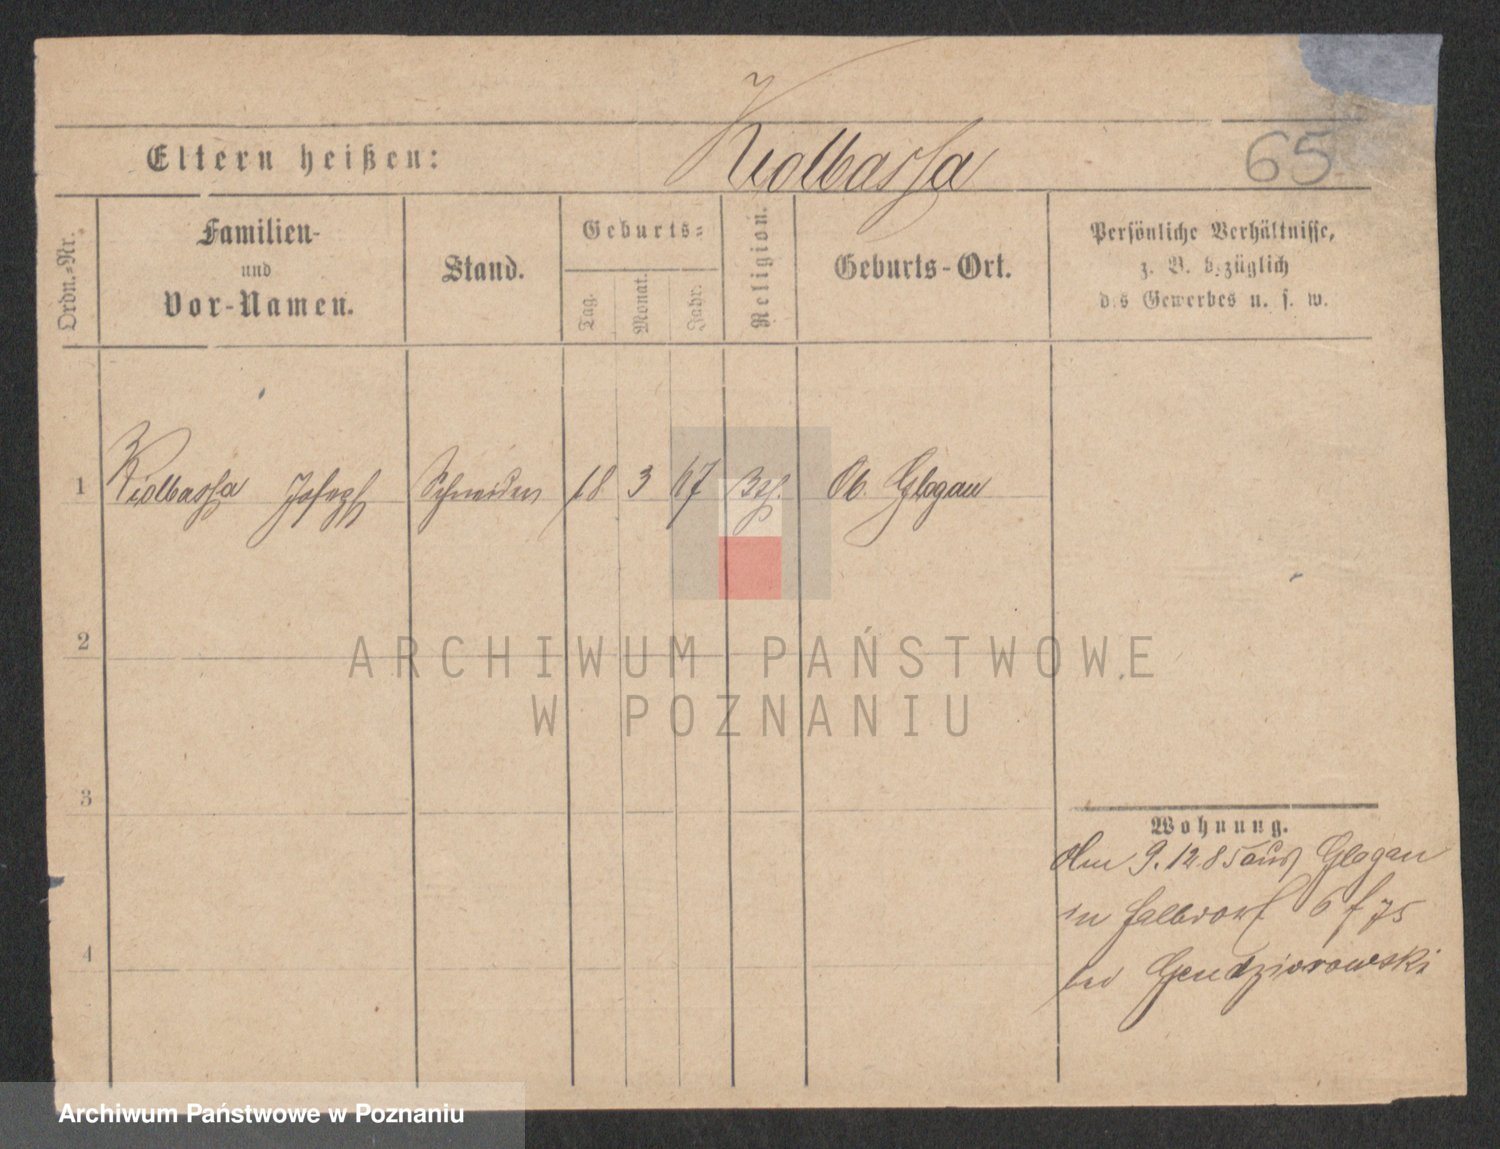 Kiolbassa
Eltern heißen:
65
Ordn.-Nr.
Familien-
und
Vor-Namen.
Stand.
Geburts-
Tag.
Monat.
Jahr.
Religion.
Geburts-Ort.
Persönliche Verhältnisse,
z. B. bezüglich
des Gewerbes u. s. w.
1 Kiolbassa Joseph Schneider 18 3 67 Ob. Glogau
2
ARCHIWUM PAŃSTWOWE
W POZNANIU
3
Wohnung.
Am 9.12.85 aus Glogau
in Halbdorf 6 f 75
bei Gendziorowski
4
Archiwum Państwowe w Poznaniu